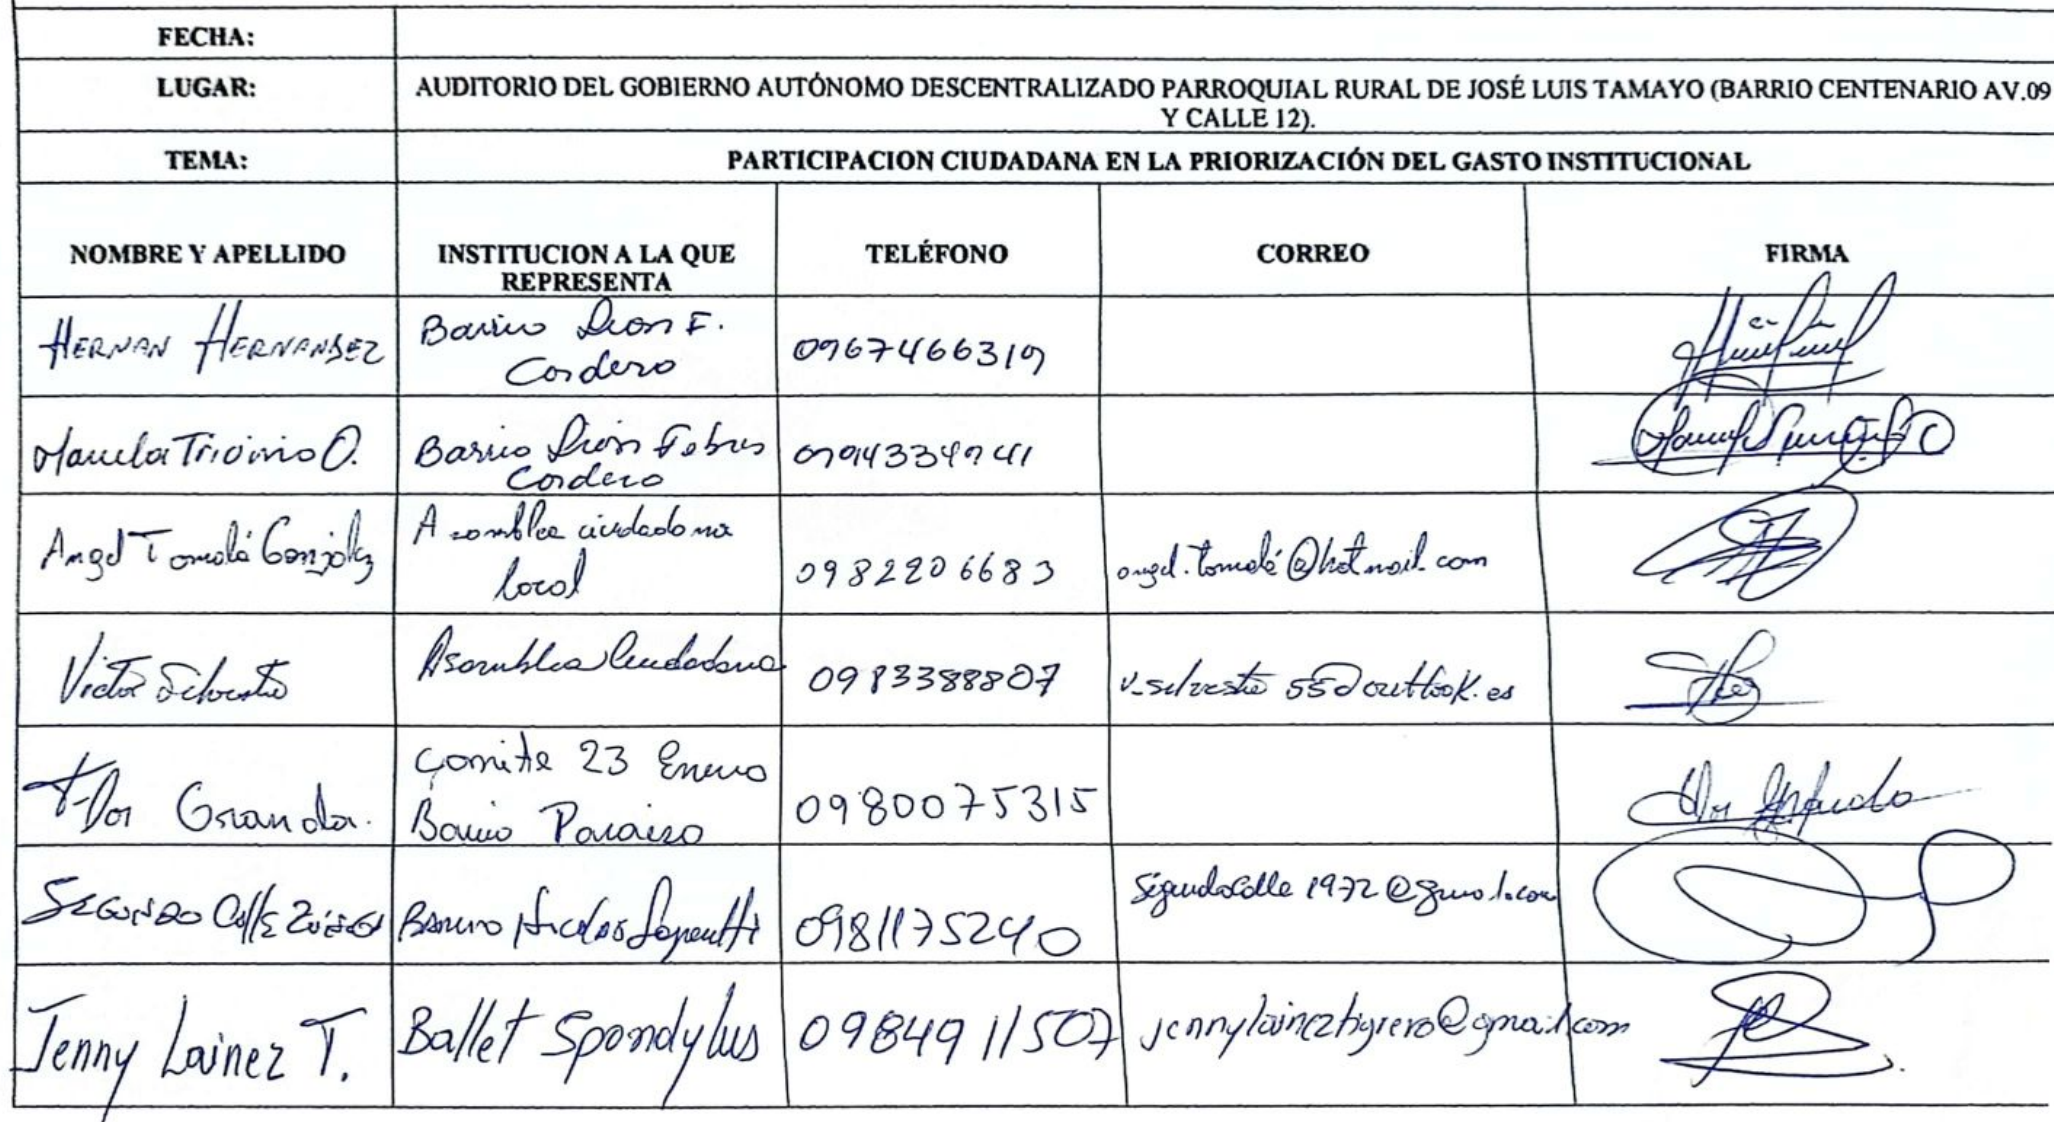 FECHA:
LUGAR: AUDITORIO DEL GOBIERNO AUTÓNOMO DESCENTRALIZADO PARROQUIAL RURAL DE JOSÉ LUIS TAMAYO (BARRIO CENTENARIO AV.09
Y CALLE 12).
TEMA: PARTICIPACION CIUDADANA EN LA PRIORIZACIÓN DEL GASTO INSTITUCIONAL
NOMBRE Y APELLIDO INSTITUCION A LA QUE TELÉFONO CORREO FIRMA
REPRESENTA
HERNAN HERNANDEZ Barrio Leon F. 0967466319
Cordero
Manuela Trivino O. Barrio León Febres 0994334941
Cordero
Angel Tomalá González Asamblea ciudadana 0982206683 angel.tomalá@hotmail.com
local
Victor Silvestre Asamblea Ciudadana 0983388807 v-silvestre55@outlook.es
Flor Granda. Comite 23 Enero 0980075315
Barrio Paraiso
SEGUNDO Calle Barrio Nicolas Lapentti 0981175240 segundocalle1972@gmail.com
Jenny Lainez T. Ballet Spondylus 0984911507 jennylaineztigrero@gmail.com